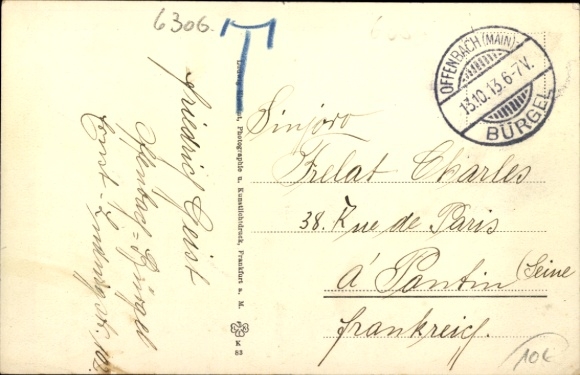 6306.
T
OFFENBACH (MAIN)
13.10.13.6-7V.
BÜRGEL
Sinjoro
Frelat Charles
38. Rue de Paris
à Pantin (Seine
Frankreich.
Friedrich Geist
Offenbach-Bürgel
Ernst-
Photographie u. Kunstlichtdruck, Frankfurt a. M.
K
83
106